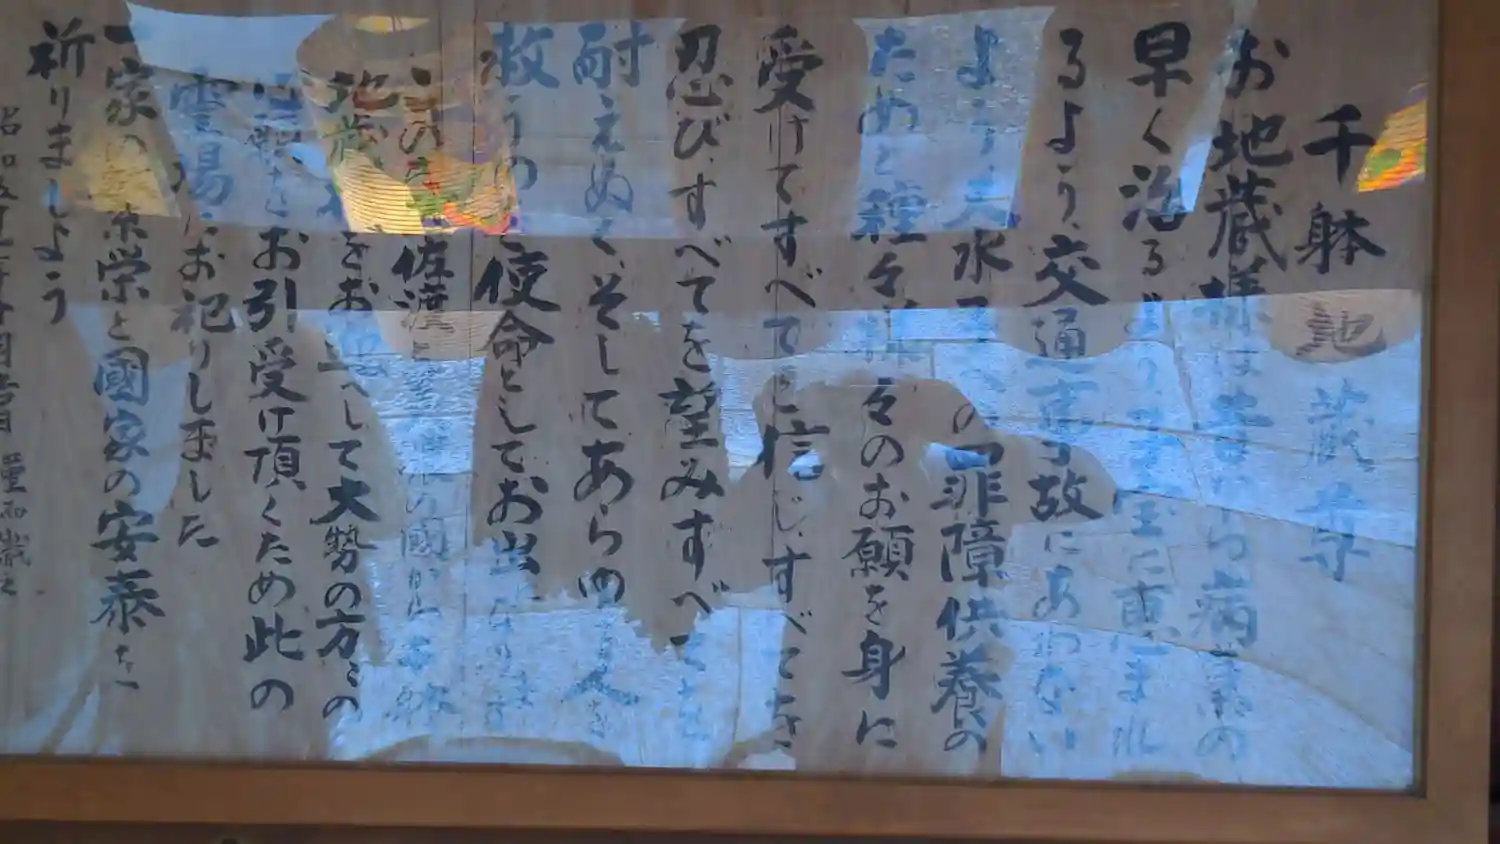 千躰地蔵尊
お地蔵様は昔から病気の
早く治るより子宝に恵まれ
るより、交通事故にあわない
より、又水子への罪障供養の
ためと種々様々のお願を身に
受けてすべてに信じ、すべてを
忍び、すべてを望みすべてを
耐えぬく、そしてあらゆる人を
救うのを使命としてお出になります
佐渡 の國から
地蔵 をお迎へして大勢の方々の
お引受け頂くため此の
霊場にお祀りしました
一家の繁栄と國家の安泰を
祈りましょう